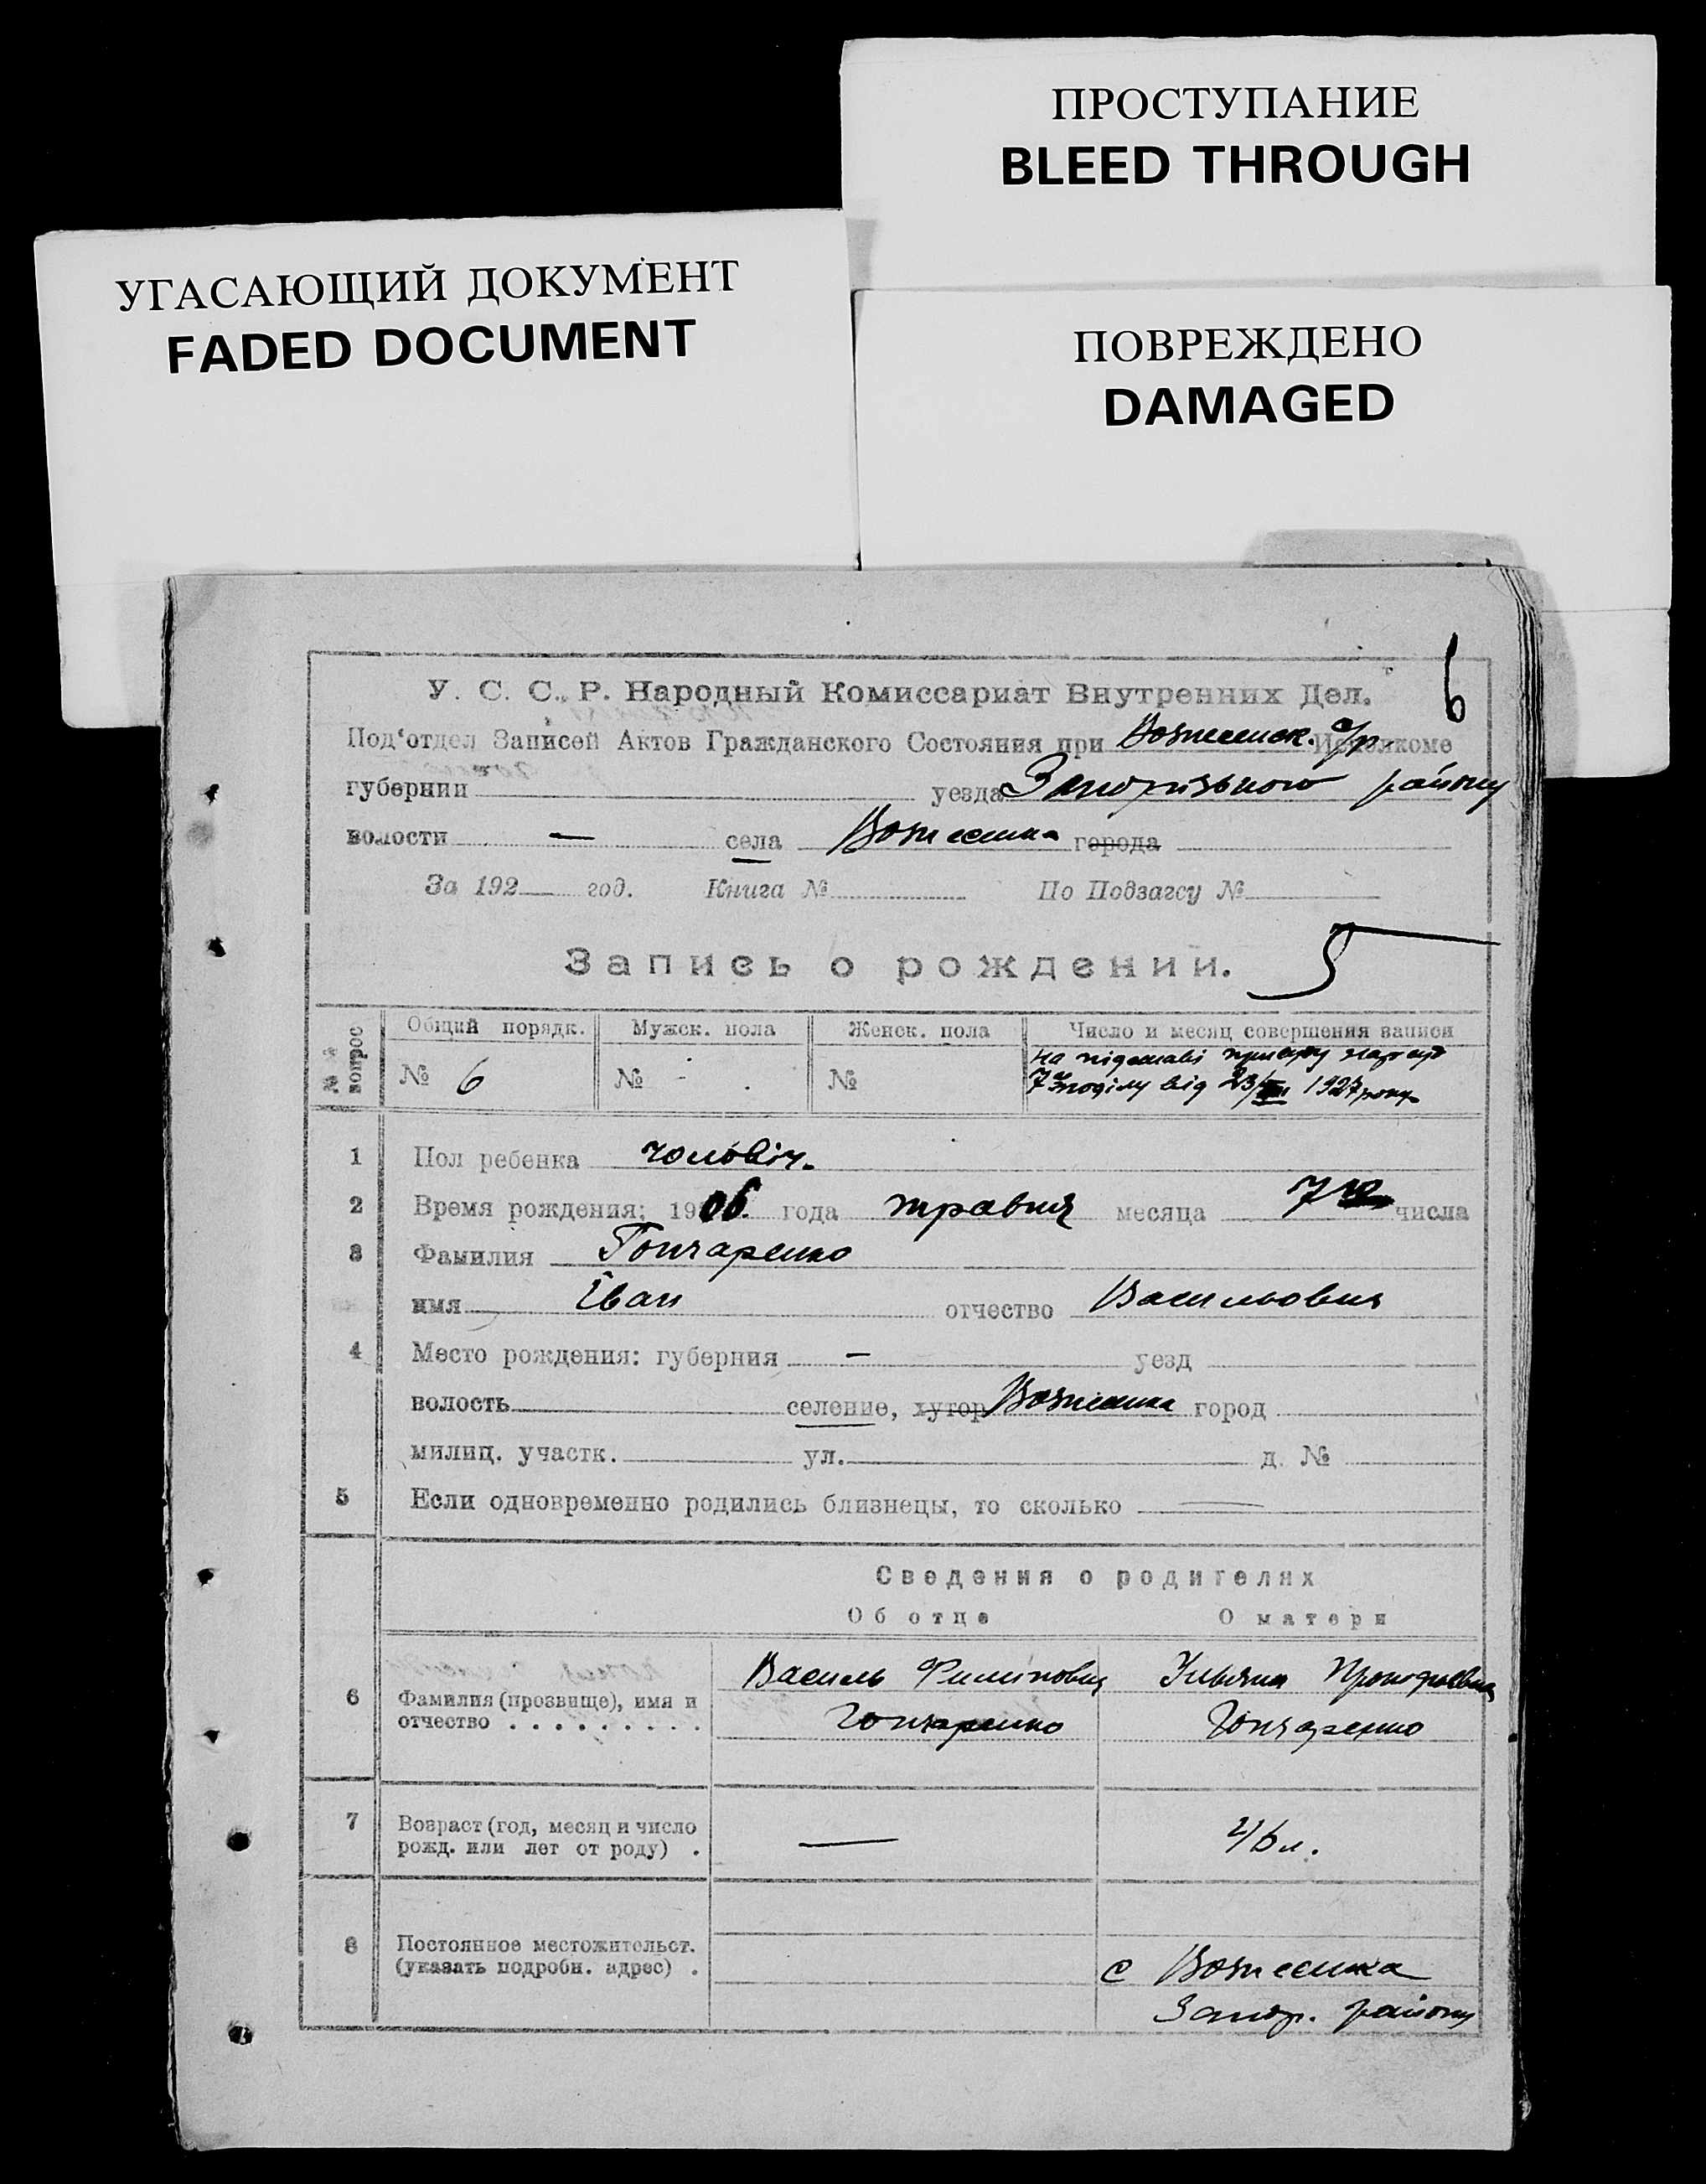 ПРОСТУПАНИЕ
BLEED THROUGH
УГАСАЮЩИЙ ДОКУМЕНТ
FADED DOCUMENT
ПОВРЕЖДЕНО
DAMAGED
6
У. С. С. Р. Народный Комиссариат Внутренних Дел.
Под'отдел Записей Актов Гражданского Состояния при Вознесенск. с/р. Исполкоме
губернии уезда Запорізького району
волости — села Вознесенка города
За 192 год. Книга № По Подзагсу №
Запись о рождении. 5
№№ вопрос Общий порядк. Мужск. пола Женск. пола Число и месяц совершения записи
№ 6 № - № на підставі присуду нарсуд
7 відділу від 23/ 1927 року
1 Пол ребенка чоловіч.
2 Время рождения: 1906. года травня месяца 7го числа
3 Фамилия Гончаренко
имя Іван отчество Васильович
4 Место рождения: губерния — уезд
волость селение, хутор Вознесенка город
милиц. участк. ул. д. №
5 Если одновременно родились близнецы, то сколько —
Сведения о родителях
Об отце О матери
6 Фамилия (прозвище), имя и отчество Василь Филипович Гончаренко Ульяна Прокофьевна Гончаренко
7 Возраст (год, месяц и число рожд. или лет от роду) — 46 л.
8 Постоянное местожительст. (указать подробн. адрес) с Вознесенка
Запор. району